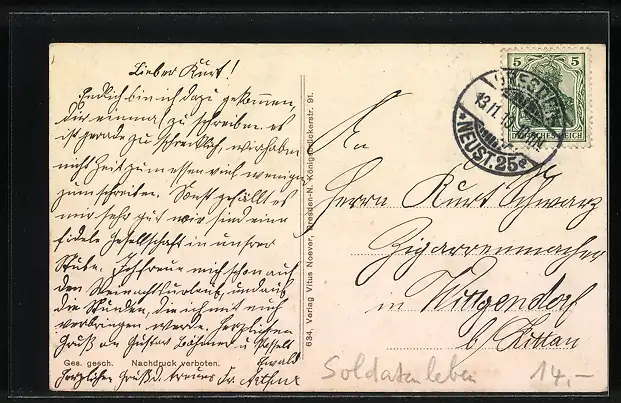 Lieber Kurt!
Endlich bin ich dazu gekommen,
dir einmal zu schreiben. es
ist gerade zu schrecklich, wir haben
nicht Zeit zum essen viel weniger
zum schreiben. Sonst gefällt es
mir sehr gut wir sind eine
fidele Gesellschaft in unsrer
Stube. Ich freue mich schon auf
den Weinachtsurlaub, und auf
die Stunden, die ich mit euch
verbringen werde. Herzlichen
Gruß an Gustav Böhmer u.
Ewald
Ges. gesch. Nachdruck verboten.
Herzlichen Gruß d. treuer Fr.
634. Verlag Vitus Noever, Dresden-N. Königsbrückerstr. 91.
5 5
DEUTSCHES REICH
DRESDEN
13.11.
*NEUST.25e
An
Herrn Kurt Schwarz
Zigarrenmacher
in Wittgendorf
b/ Zittau
Soldatenleben 14,-